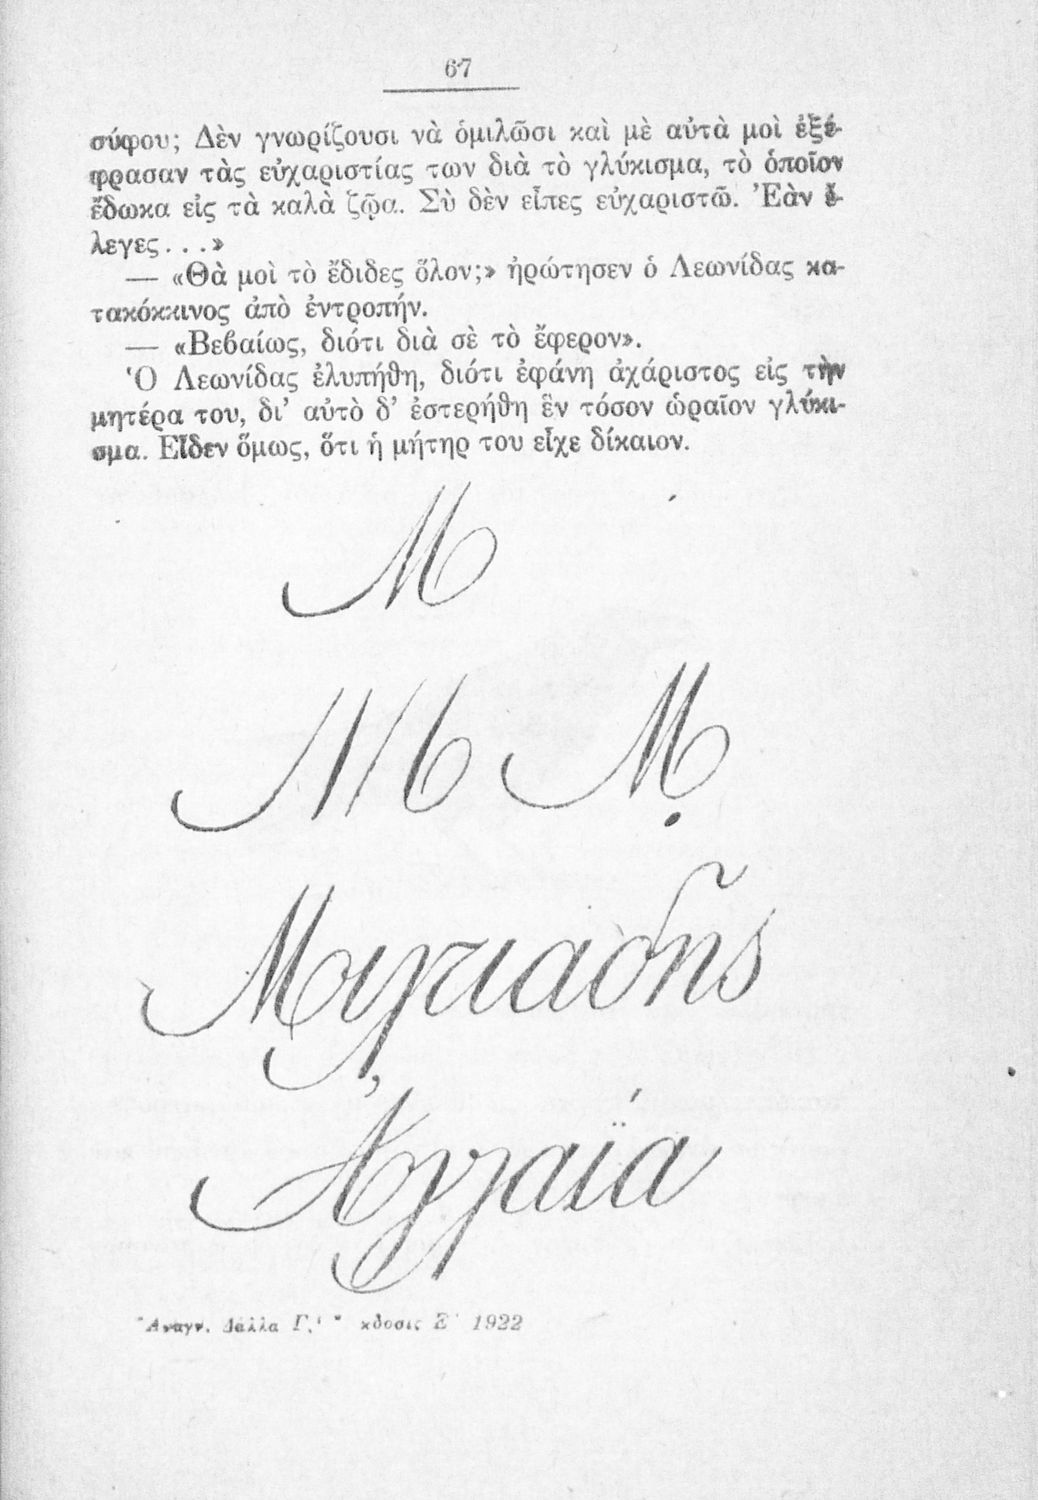 67
σύφου; Δὲν γνωρίζουσι νὰ ὁμιλῶσι καὶ μὲ αὐτὰ μοὶ ἐξέ-
φρασαν τὰς εὐχαριστίας των διὰ τὸ γλύκισμα, τὸ ὁποῖον
ἔδωκα εἰς τὰ καλὰ ζῷα. Σὺ δὲν εἶπες εὐχαριστῶ. Ἐὰν ἔ-
λεγες...»
— «Θὰ μοὶ τὸ ἔδιδες ὅλον;» ἠρώτησεν ὁ Λεωνίδας κα-
τακόκκινος ἀπὸ ἐντροπήν.
— «Βεβαίως, διότι διὰ σὲ τὸ ἔφερον».
Ὁ Λεωνίδας ἐλυπήθη, διότι ἐφάνη ἀχάριστος εἰς τὴν
μητέρα του, δι’ αὐτὸ δ’ ἐστερήθη ἓν τόσον ὡραῖον γλύκι-
σμα. Εἶδεν ὅμως, ὅτι ἡ μήτηρ του εἶχε δίκαιον.
Μ
Μ Μ
Μιλτιάδης
Ἀγλαΐα
Ἀναγν. Δάλλα Γ.' κδοσις Ε' 1922